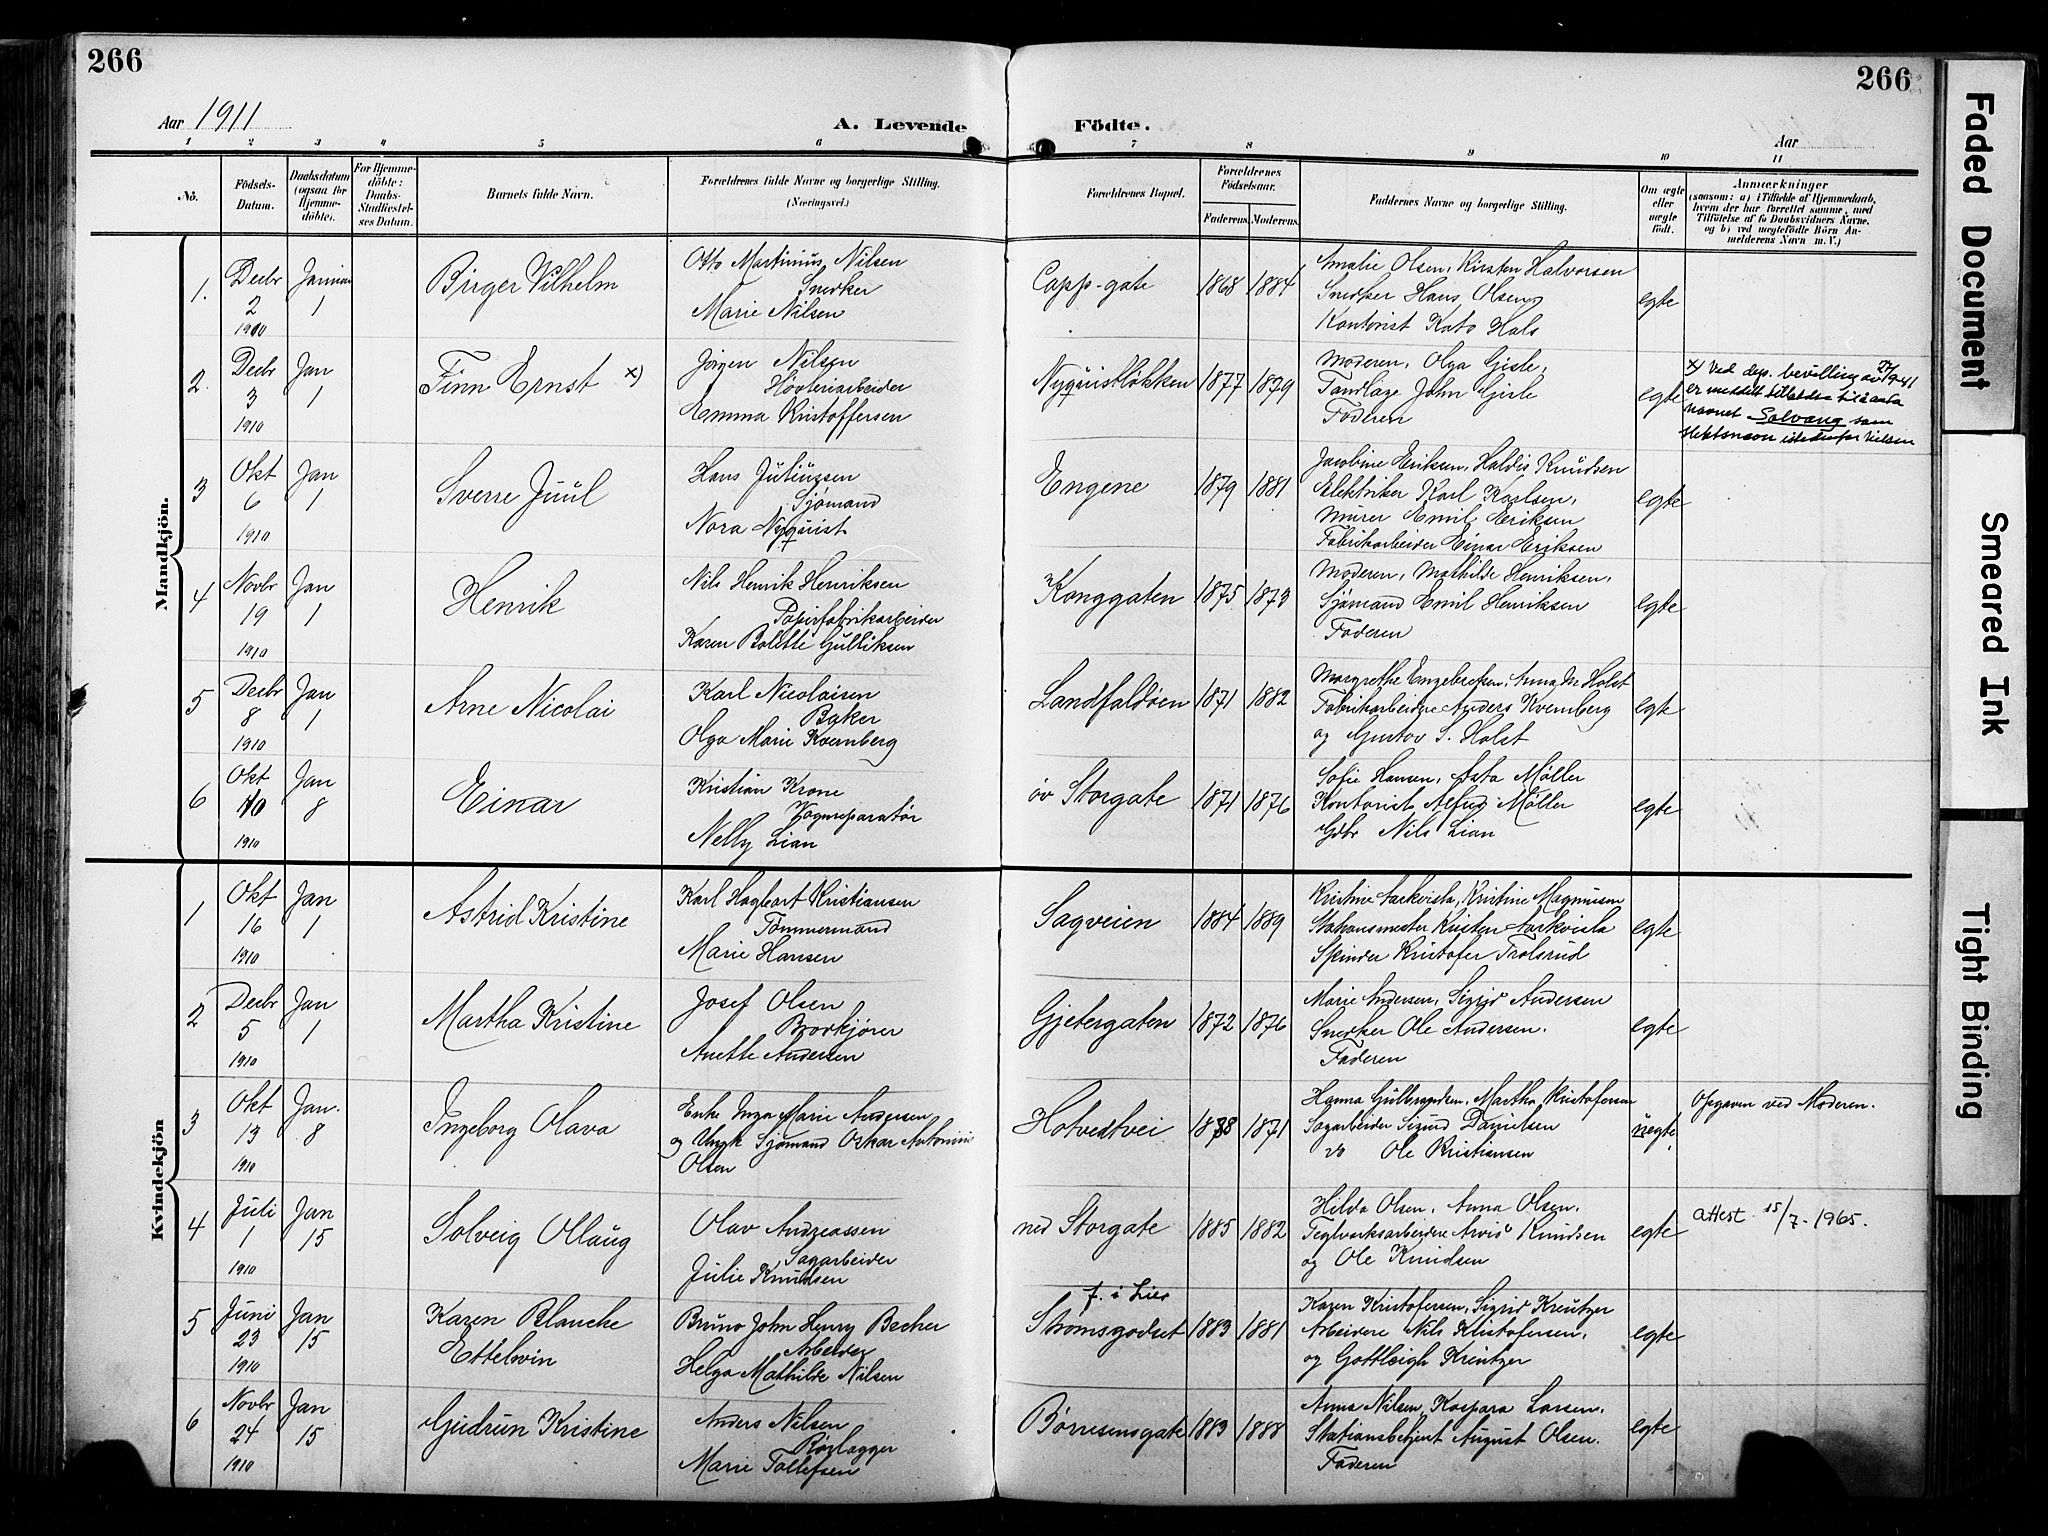 266
266
Aar 1911
A. Levende Födte.
Aar
1 2 3 4 5 6 7 8 9 10 11
No.
Födsels-Datum.
Daabsdatum (ogsaa for Hjemmedöbte).
For Hjemmedöbte: Daabs-Stadfæstelses Datum.
Barnets fulde Navn.
Forældrenes fulde Navne og borgerlige Stilling. (Næringsvei.)
Forældrenes Bopæl.
Forældrenes Födselsaar.
Faderens. Moderens.
Faddernes Navne og borgerlige Stilling.
Om ægte eller uægte födt.
Anmærkninger
(saasom: a) i Tilfælde af Hjemmedaab, hvem der har forrettet samme, med Tilföielse af to Daabsvidners Navne. og b) ved uægtefödte Börn Anmelderens Navn m. V.)
Mandkjön.
1. Decbr 2 1910
Januar 1
Birger Vilhelm
Otto Martinius Nilsen
Snedker
Marie Nilsen
Capp-gate
1868 1884
Amalie Olsen, Kirsten Halvorsen
Snedker Hans Olsen
Kontorist Kato Hals
egte
2. Decbr 3 1910
Jan 1
Finn Ernst x)
Jørgen Nilsen
Høvleriarbeider
Emma Kristoffersen
Nyquistløkken
1877 1879
Moderen, Olga Gisle,
Tandlæge John Gisle
Faderen
egte
x) Ved dep. bevilling av 1941
er meddelt tilladelse til å anta
navnet Solvang som
slektsnavn istedenfor Nielsen
3 Okt 6 1910
Jan 1
Sverre Juul
Hans Juliussen
Sjømand
Nora Nyquist
Engene
1879 1881
Jacobine Eriksen, Haldis Knudsen
Elektriker Karl Karlsen,
Murer Emil Eriksen
Fabrikarbeider Einar Eriksen
egte
4 Novbr 19 1910
Jan 1
Henrik
Nils Henrik Henriksen
Papirfabrikarbeider
Karen Bolette Gulliksen
Konggaten
1875 1873
Moderen, Mathilde Henriksen,
Sjømand Emil Henriksen
Faderen
egte
5 Decbr 8 1910
Jan 1
Arne Nicolai
Karl Nicolaisen
Baker
Olga Marie Kvernberg
Landfaldøen
1871 1882
Margrethe Engebretsen, Anna M Holst
Fabrikarbeidere Anders Kvernberg
og Gustav S. Holst
egte
6 Okt 10 1910
Jan 8
Einar
Kristian Krone
Vognreparatør
Nelly Lian
øv Storgate
1871 1876
Sofie Hansen, Asta Møller
Kontorist Alfred Møller
Gdbr Nils Lian
egte
Kvindekjön
1 Okt 16 1910
Jan 1
Astrid Kristine
Karl Hagbart Kristiansen
Tømmermand
Marie Hansen
Sagveien
1884 1889
Kristine Aarkvisla, Kristine Magnussen
Stationsmester Kristen Aarkvisla
Spinder Kristofer Trolsrud
egte
2 Decbr 5 1910
Jan 1
Martha Kristine
Josef Olsen
Bordkjører
Anette Andersen
Gjetergaten
1872 1876
Marie Andersen, Sigrid Andersen
Snedker Ole Andersen.
Faderen
egte
3 Okt 13 1910
Jan. 8
Ingeborg Olava
Enke Inga Marie Andersen
og Ungk Sjømand Oskar Antonius
Olsen
Hotvedtvei
1888 1871
Hanna Gulbrandsen, Martha Kristofersen
Sagarbeider Sigurd Danielsen
do Ole Kristiansen
uegte.
Opgaven ved Moderen.
4 Juli 1 1910
Jan 15
Solveig Ollaug
Olav Andreassen
Sagarbeider
Julie Knudsen
ned Storgate
1885 1882
Hilda Olsen, Anna Olsen.
Teglverksarbeidere Arvid Knudsen
og Ole Knudsen
egte
attest 15/7-1965.
5 Juni 23 1910
Jan 15
Karen Blanche
Ettelwin
Bruno John Henry Becher
Arbeider
Helga Mathilde Nilsen
f. i Lier
Strømsgodset
1883 1881
Karen Kristofersen, Sigrid Kreutzer
Arbeidere Nils Kristofersen,
og Gottleigh Kreutzer
egte
6 Novbr 24 1910
Jan 15
Gudrun Kristine
Anders Nilsen
Rørlægger
Marie Tollefsen
Børresensgate
1883 1888
Anna Nilsen, Kaspara Larsen.
Stationsbetjent August Olsen.
Faderen
egte
Faded Document
Smeared Ink
Tight Binding